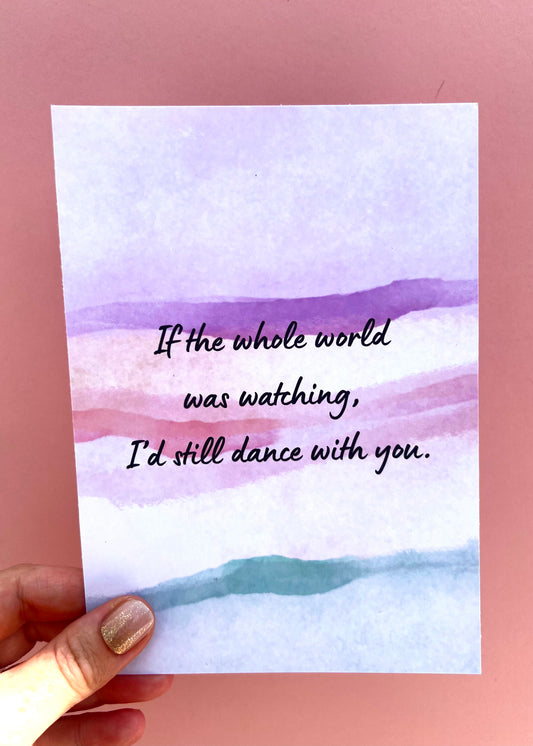 If the whole world
was watching,
I'd still dance with you.